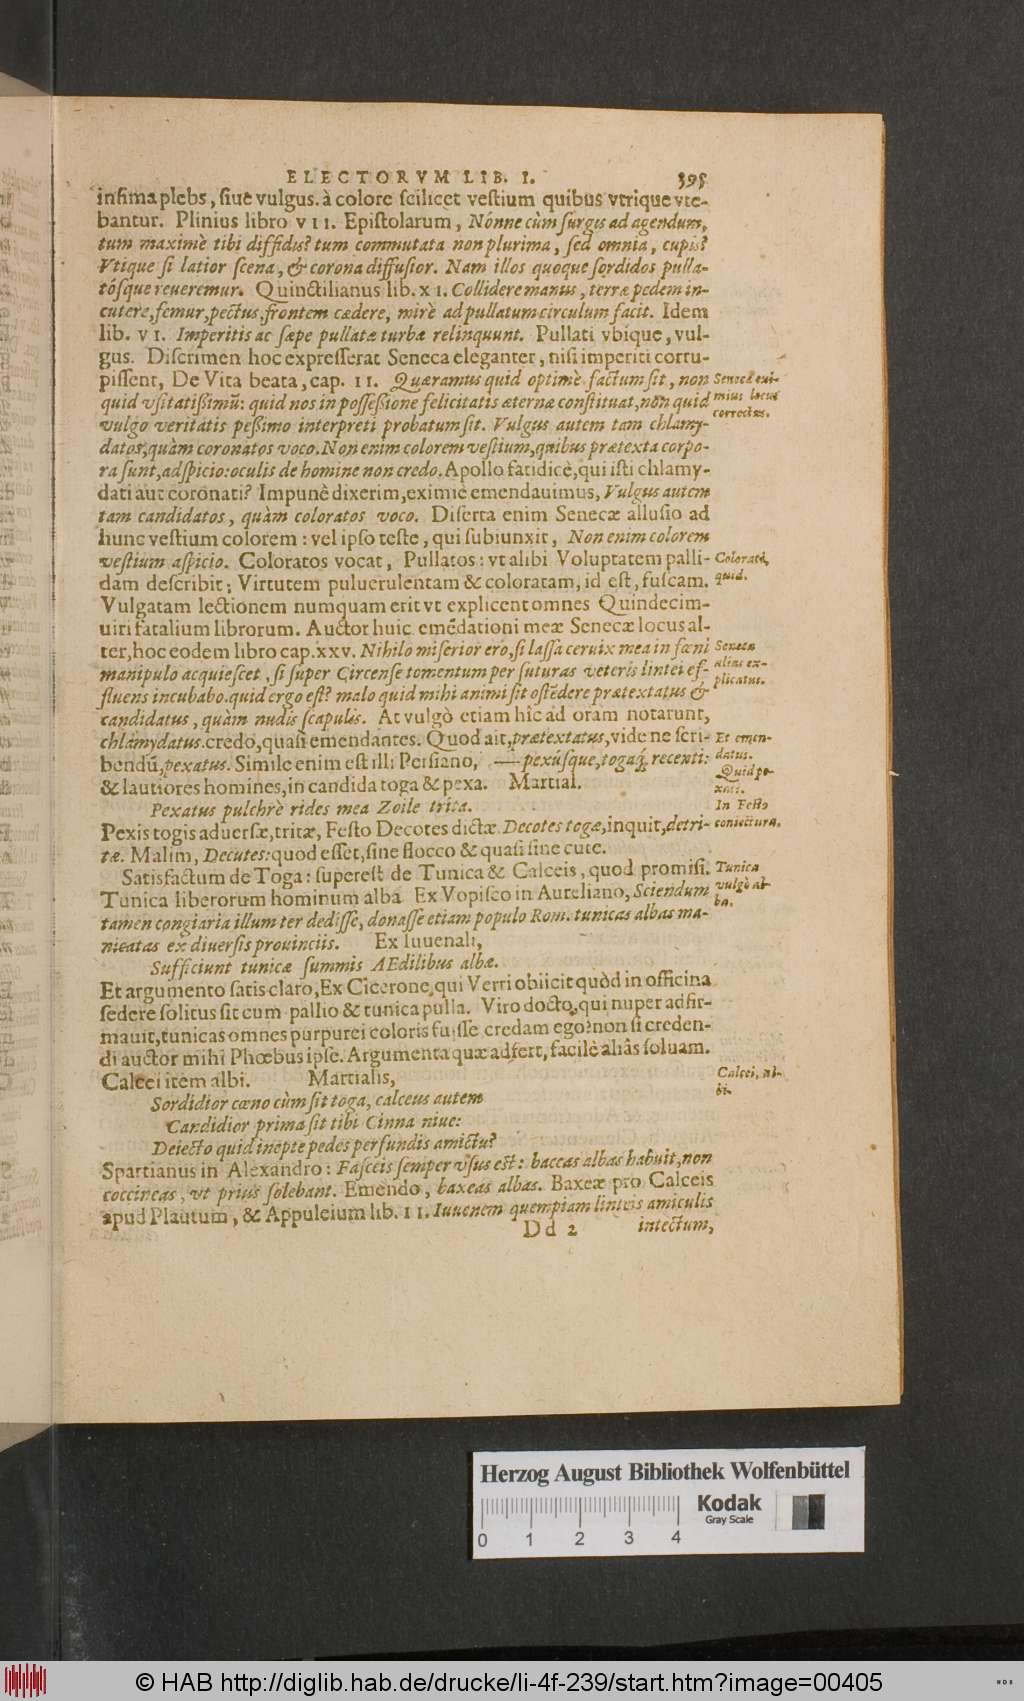 ELECTORVM LIB. I. 395
infima plebs, siue vulgus. à colore scilicet vestium quibus vtrique vte-
bantur. Plinius libro VII. Epistolarum, Nónne cùm surgis ad agendum,
tum maximè tibi diffidis? tum commutata non plurima, sed omnia, cupis?
Vtique si latior scena, & corona diffusior. Nam illos quoque sordidos pulla-
tósque reueremur. Quinctilianus lib. XI. Collidere manus, terræ pedem in-
cutere, femur, pectus, frontem cædere, mirè ad pullatum circulum facit. Idem
lib. VI. Imperitis ac sæpe pullatæ turbæ relinquunt. Pullati vbique, vul-
gus. Discrimen hoc expresserat Seneca eleganter, nisi imperiti corru-
pissent, De Vita beata, cap. II. Quæramus quid optimè factum sit, non
quid vsitatißimũ: quid nos in possessione felicitatis æternæ constituat, non quid
vulgo veritatis peßimo interpreti probatum sit. Vulgus autem tam chlamy-
datos, quàm coronatos voco. Non enim colorem vestium, quibus prætexta corpo-
ra sunt, adspicio: oculis de homine non credo. Apollo fatidicè, qui isti chlamy-
dati aut coronati? Impunè dixerim, eximiè emendauimus, Vulgus autem
tam candidatos, quàm coloratos voco. Diserta enim Senecæ allusio ad
hunc vestium colorem: vel ipso teste, qui subiunxit, Non enim colorem
vestium aspicio. Coloratos vocat, Pullatos: vt alibi Voluptatem palli-
dam describit; Virtutem puluerulentam & coloratam, id est, fuscam.
Vulgatam lectionem numquam erit vt explicent omnes Quindecim-
uiri fatalium librorum. Auctor huic emẽdationi meæ Senecæ locus al-
ter, hoc eodem libro cap. XXV. Nihilo miserior ero, si lassa ceruix mea in fœni
manipulo acquiescet, si super Circense tomentum per suturas veteris lintei ef-
fluens incubabo. quid ergo est? malo quid mihi animi sit ostẽdere prætextatus &
candidatus, quàm nudis scapulis. At vulgò etiam hîc ad oram notarunt,
chlamydatus. credo, quasi emendantes. Quod ait, prætextatus, vide ne scri-
bendũ, pexatus. Simile enim est illi Persiano, — pexúsque, togaq́; recenti:
& lautiores homines, in candida toga & pexa. Martial.
Pexatus pulchrè rides mea Zoile trita.
Pexis togis aduersæ, tritæ, Festo Decotes dictæ. Decotes togæ, inquit, detri-
tæ. Malim, Decutes: quod esset, sine flocco & quasi sine cute.
Satisfactum de Toga: superest de Tunica & Calceis, quod promisi.
Tunica liberorum hominum alba. Ex Vopisco in Aureliano, Sciendum
tamen congiaria illum ter dedisse, donasse etiam populo Rom. tunicas albas ma-
nicatas ex diuersis prouinciis. Ex Iuuenali,
Sufficiunt tunicæ summis AEdilibus albæ.
Et argumento satis claro, Ex Cicerone, qui Verri obiicit quòd in officina
sedere solitus sit cum pallio & tunica pulla. Viro docto, qui nuper adfir-
mauit, tunicas omnes purpurei coloris fuisse credam ego? non si creden-
di auctor mihi Phœbus ipse. Argumenta quæ adfert, facilè aliàs soluam.
Calcei item albi. Martialis,
Sordidior cœno cùm sit toga, calceus autem
Candidior prima sit tibi Cinna niue:
Deiecto quid inepte pedes perfundis amictu?
Spartianus in Alexandro: Fasceis semper vsus est: baccas albas habuit, non
coccineas, vt prius solebant. Emendo, baxeas albas. Baxeæ pro Calceis
apud Plautum, & Appuleium lib. II. Iuuenem quempiam linteis amiculis
Dd 2 intectum,
Senecæ exi-
mius locus
correctus.
Colorati,
quid.
Seneca
alias ex-
plicatus.
Et emen-
datus.
Quid pe-
xati.
In Festo
coniectura.
Tunica
vulgò al-
ba.
Calcei, al-
bi.
Herzog August Bibliothek Wolfenbüttel
Kodak
Gray Scale
0 1 2 3 4
© HAB http://diglib.hab.de/drucke/li-4f-239/start.htm?image=00405